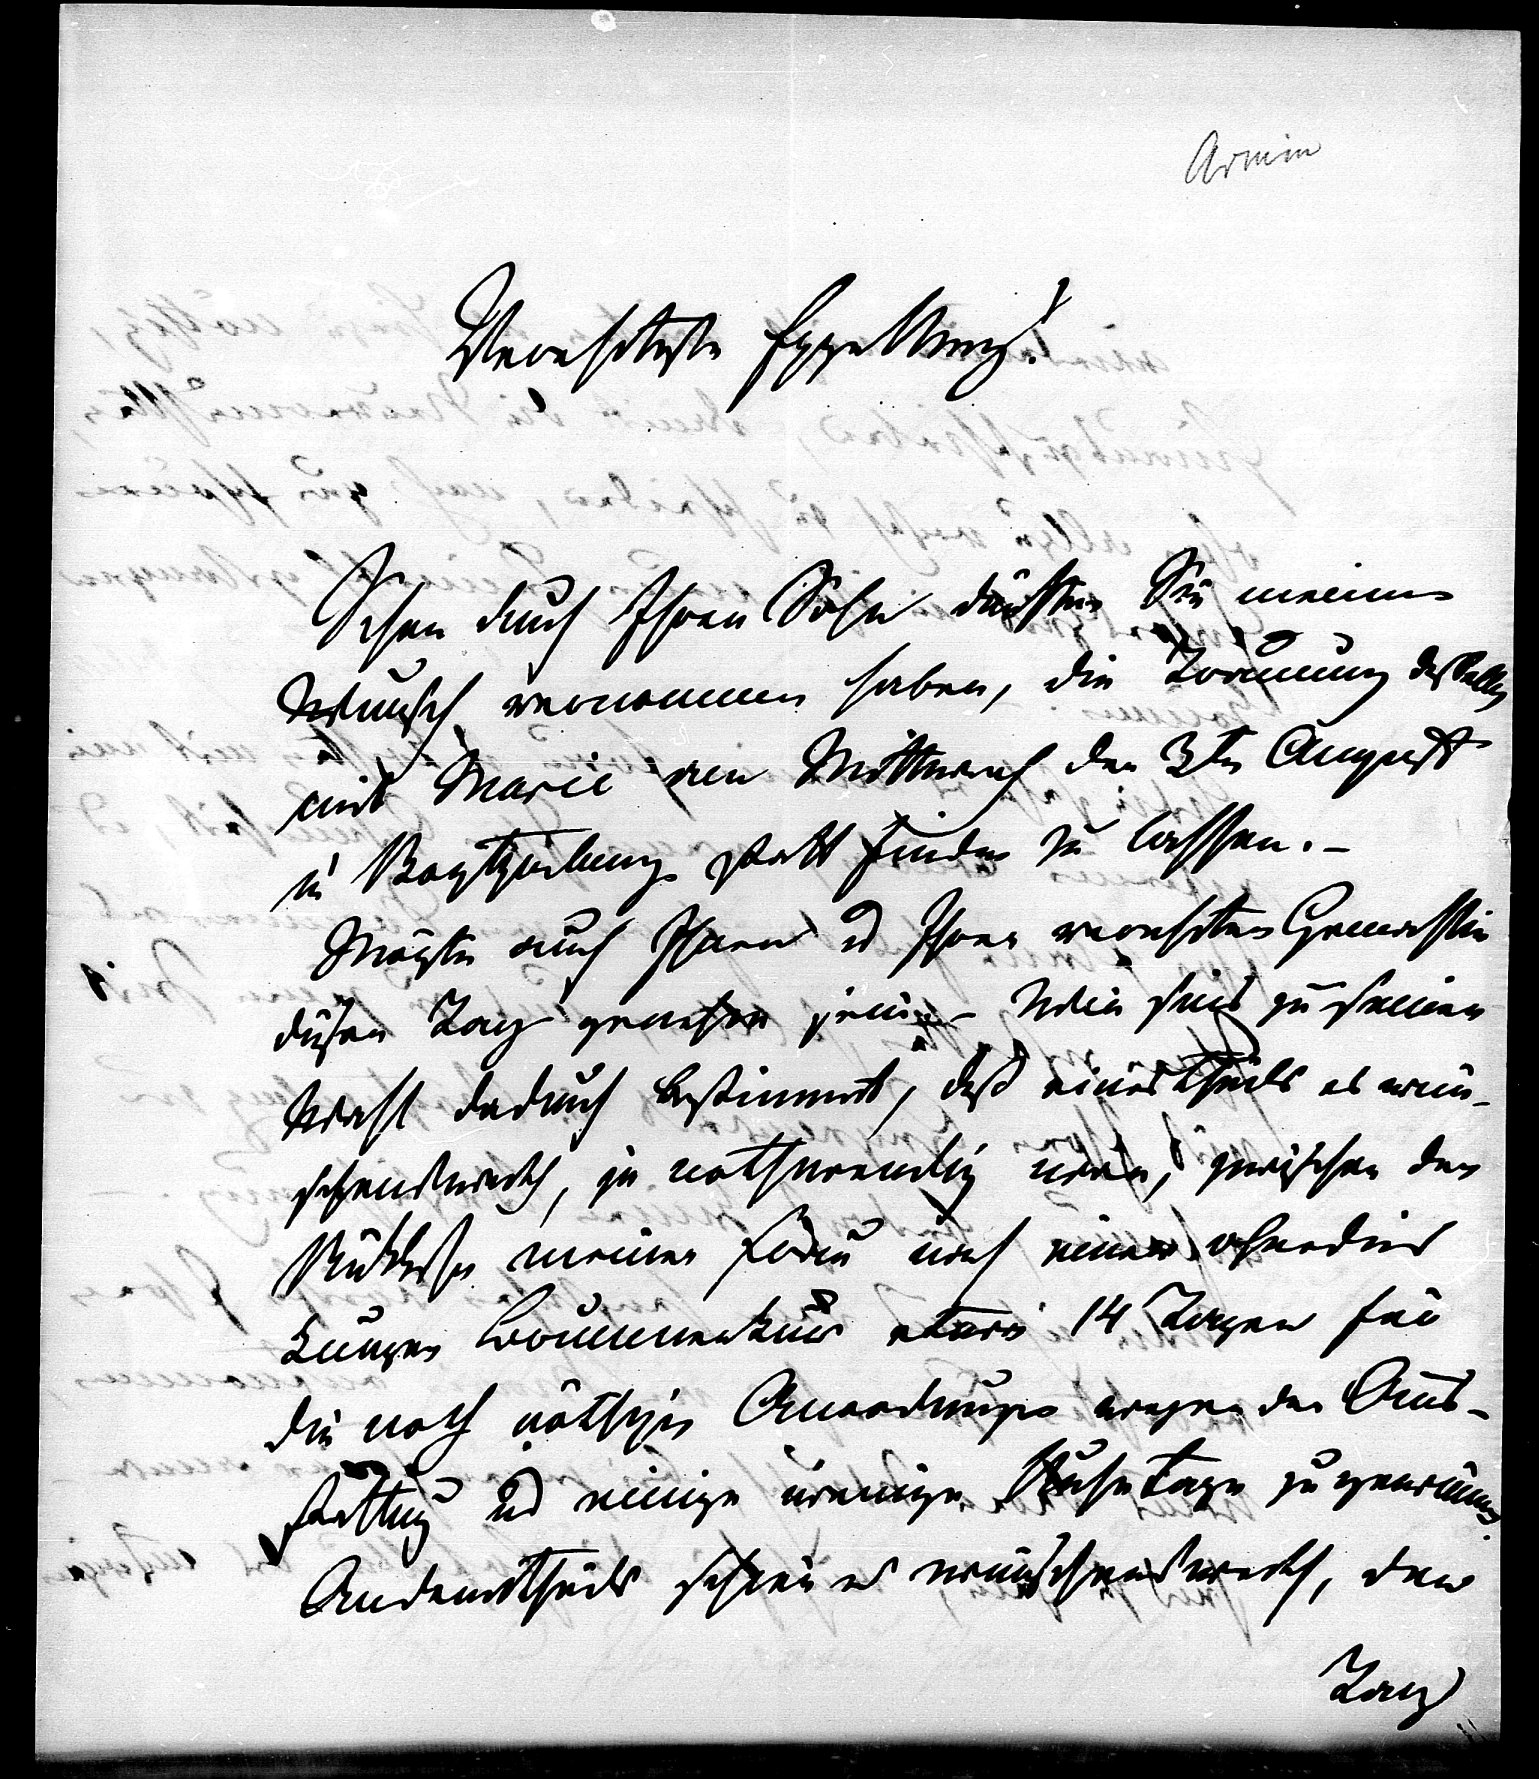 Arnim
Verehrteste Excellenz!
Schon durch Ihren Sohn dürften Sie meinen
Wunsch vernommen haben, die Trauung desselben
mit Marie am Mittwoch den 3ten August
in Boytzenburg statt finden zu lassen. –
Möchte auch Ihnen u Ihrer verehrten Gemahlin
dieser Tag genehm sein – Wir sind zu seiner
Wahl dadurch bestimmt, daß einestheils es wün-
schenswerth, ja nothwendig war, zwischen der
Rückkehr meiner Frau nach einer ohnedies
kurzen Brunnenkur etwa 14 Tagen für
die noch nöthigen Anordnungen wegen der Aus-
stattung und einige wenige Ruhetage zu gewinnen.
Anderntheils schien es wünschenswerth, den
Tag